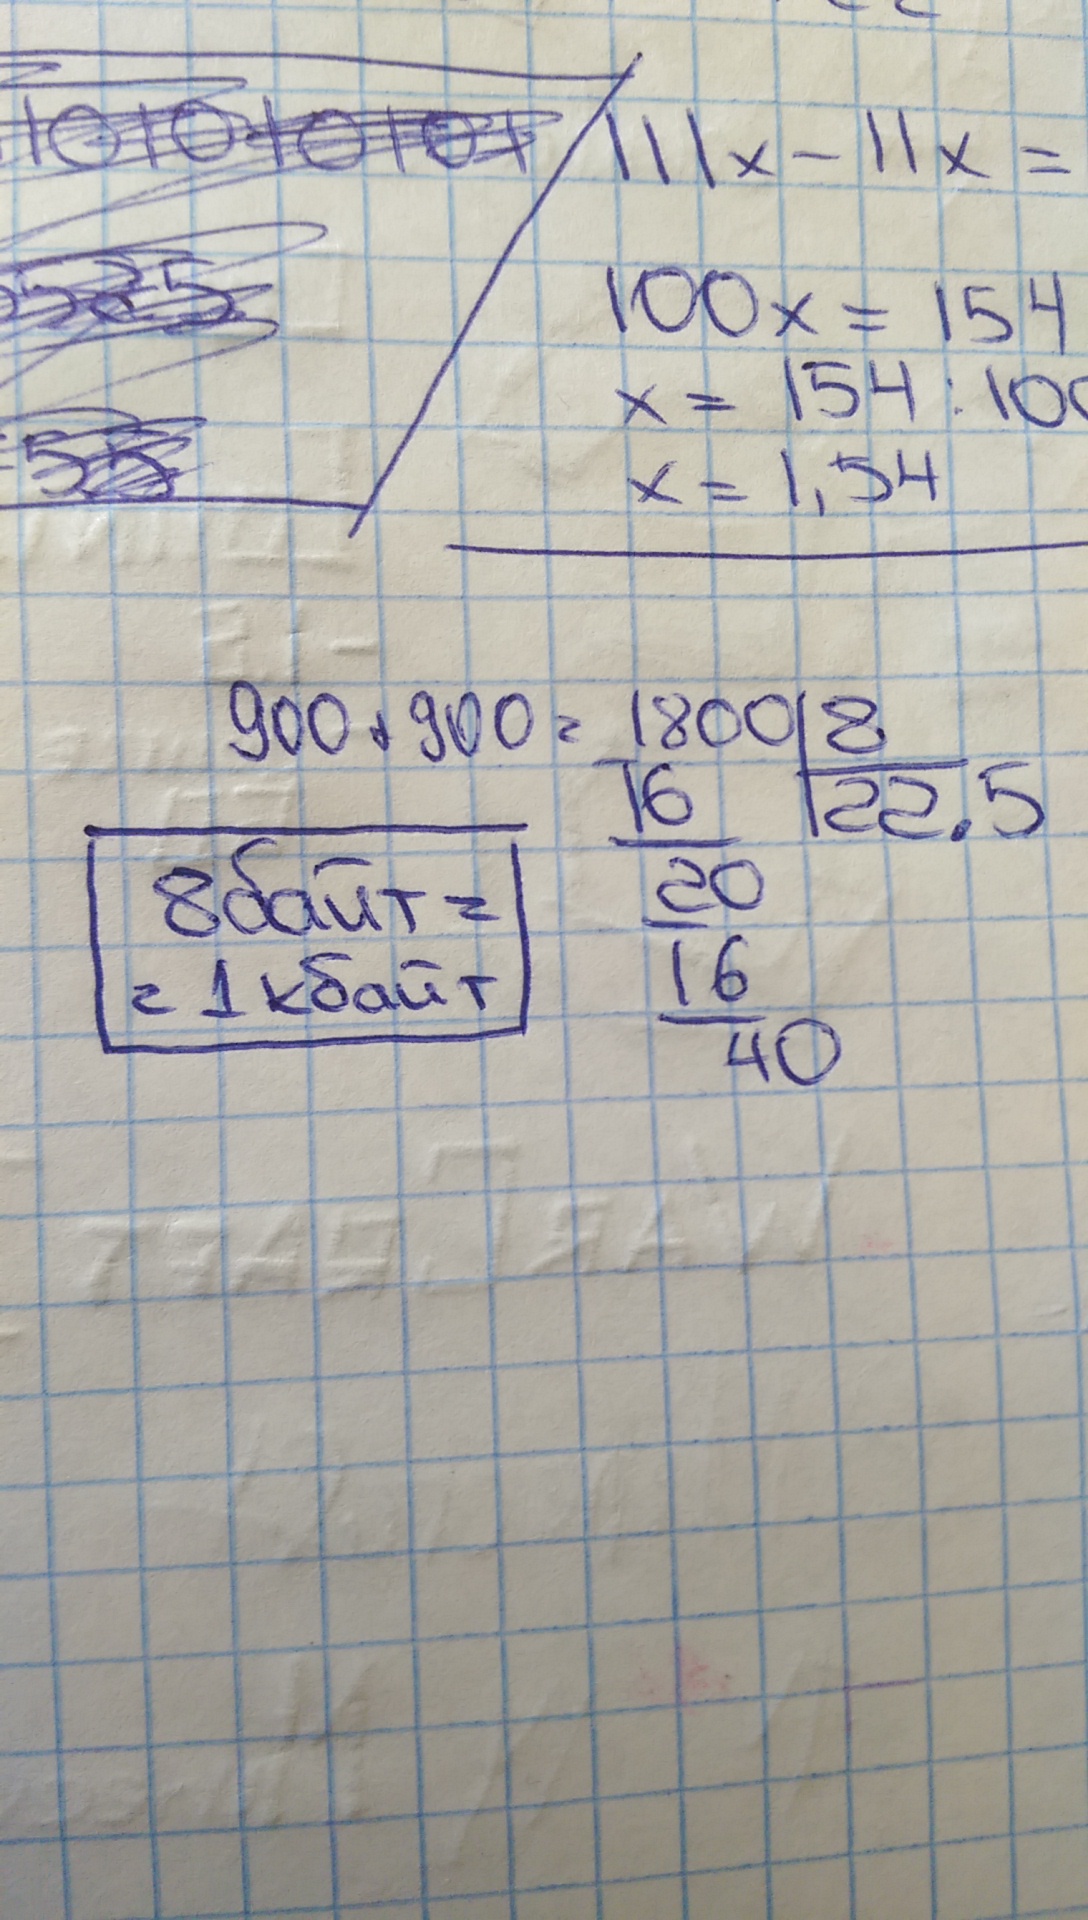 111x - 11x =
100x = 154
x = 154 : 100
x = 1,54
900 + 900 = 1800 | 8
16 22.5
20
16
40
8байт =
= 1кбайт